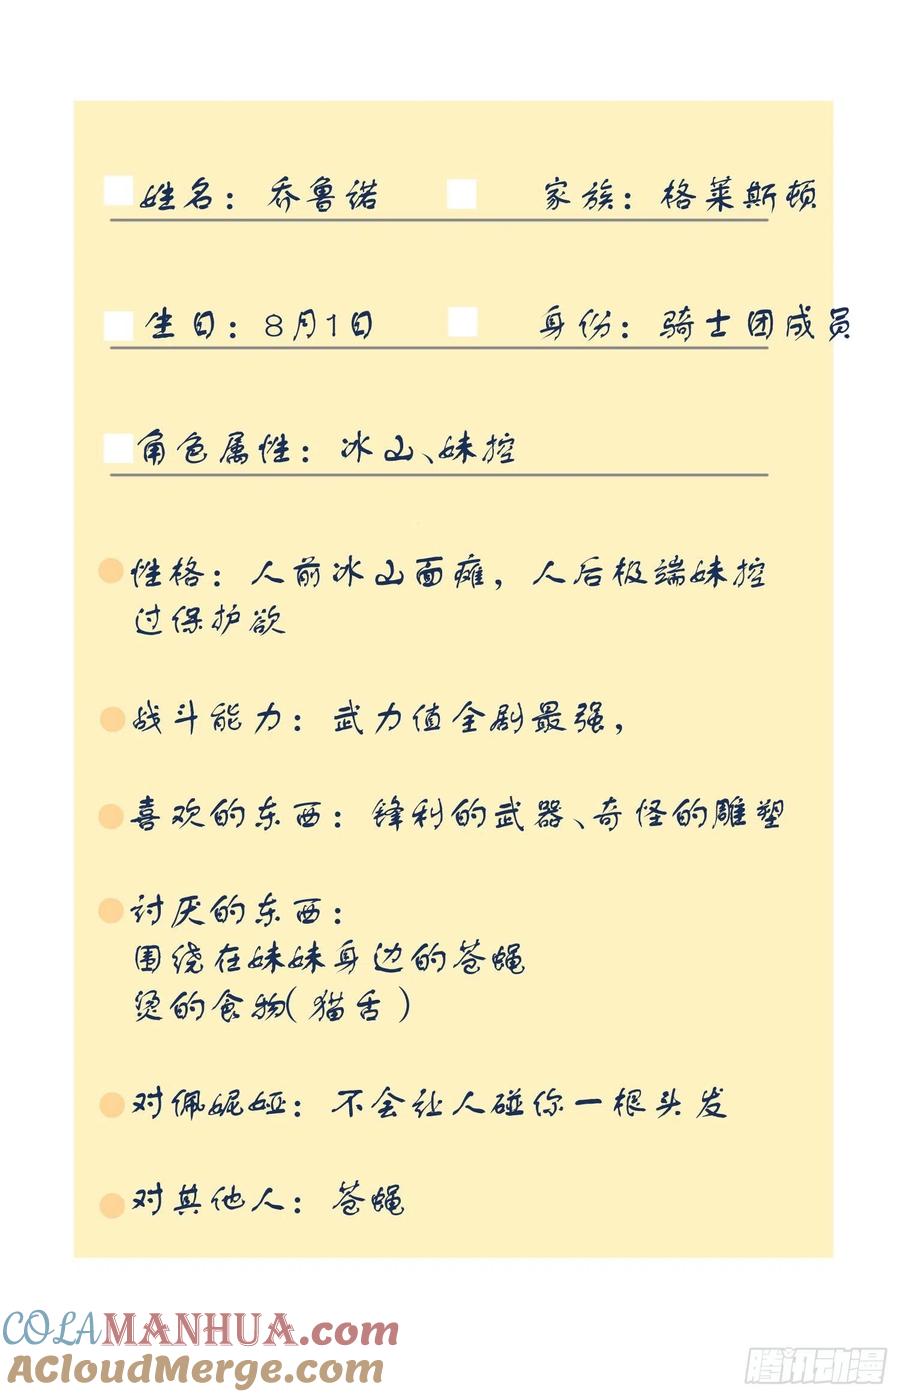 姓名：乔鲁诺 家族：格莱斯顿
生日：8月1日 身份：骑士团成员
角色属性：冰山、妹控
性格：人前冰山面瘫，人后极端妹控
过保护欲
战斗能力：武力值全剧最强，
喜欢的东西：锋利的武器、奇怪的雕塑
讨厌的东西：
围绕在妹妹身边的苍蝇
烫的食物（猫舌）
对佩妮娅：不会让人碰你一根头发
对其他人：苍蝇
COLAMANHUA.com
ACloudMerge.com
腾讯动漫